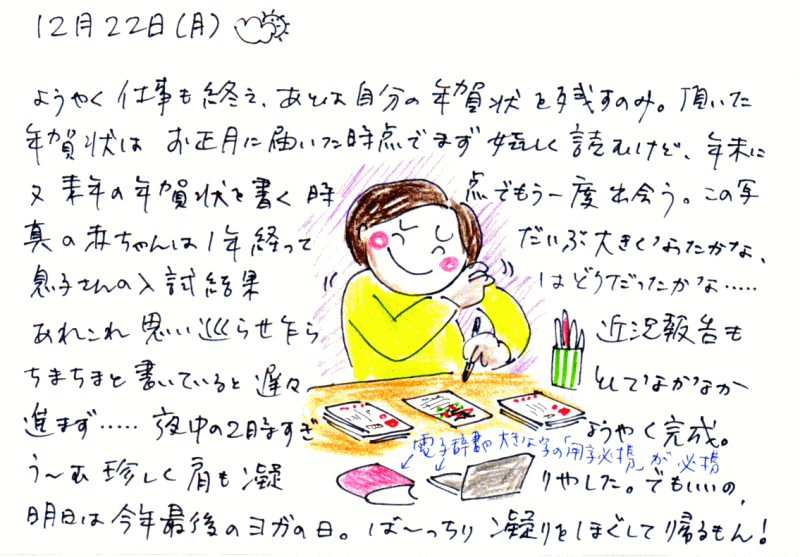 12月22日(月)
ようやく仕事も終え、あとは自分の年賀状を残すのみ。頂いた
年賀状はお正月に届いた時点でまず嬉しく読むけど、年末に
又来年の年賀状を書く時点でもう一度出会う。この写
真の赤ちゃんは1年経ってだいぶ大きくなったかな、
息子さんの入試結果はどうだったかな……
あれこれ思い巡らせ乍ら近況報告も
ちまちまと書いていると遅々としてなかなか
進まず……夜中の2時すぎようやく完成。
電子辞書 大きな字の「用字必携」が必携
う〜む珍しく肩も凝りやした。でもいいの、
明日は今年最後のヨガの日。ば〜っちり凝りをほぐして帰るもん!